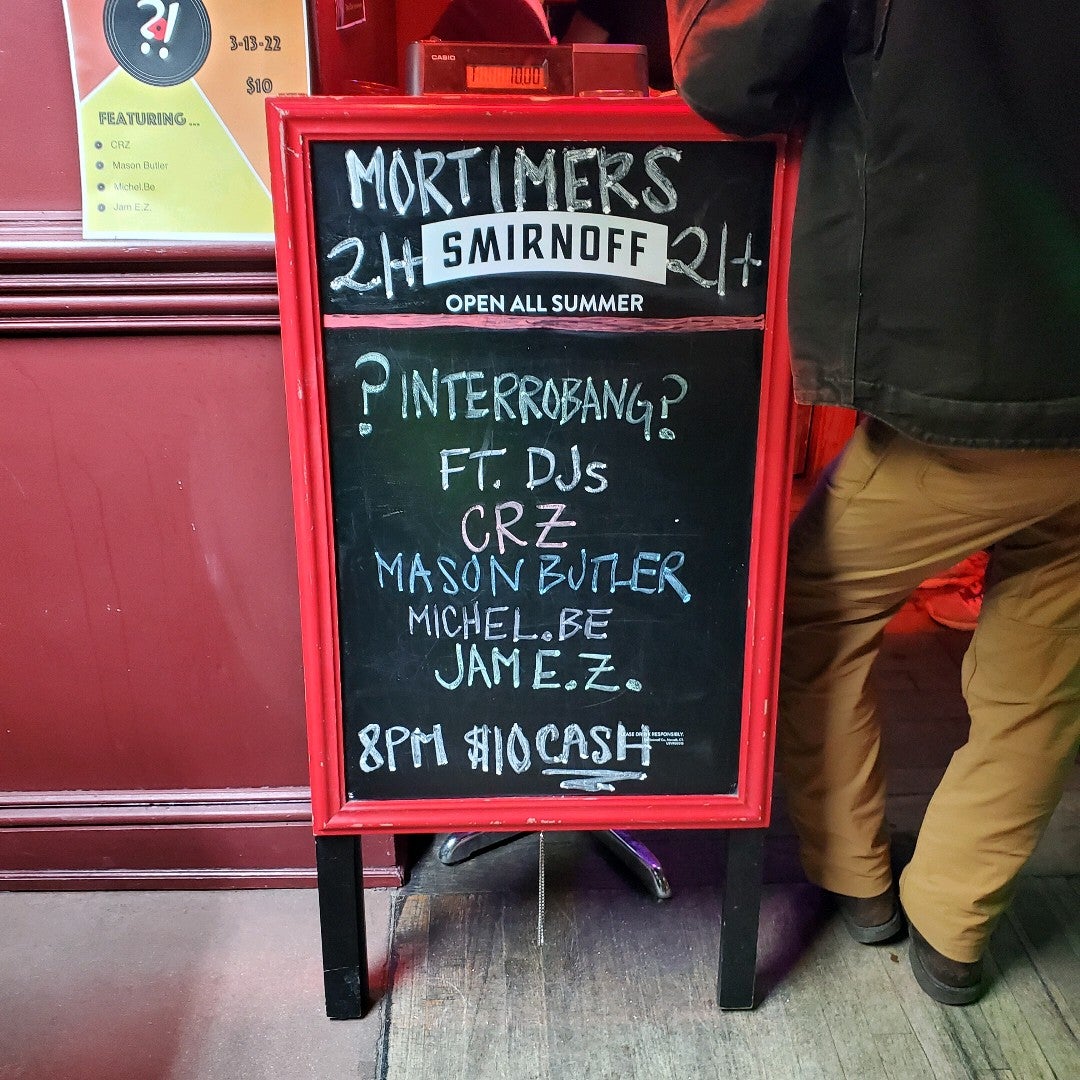 ?!
3-13-22
$10
FEATURING...
CRZ
Mason Butler
Michel.Be
Jam E.Z.
CASIO
10.00
MORTIMERS
21+ SMIRNOFF 21+
OPEN ALL SUMMER
?INTERROBANG?
FT. DJs
CRZ
MASON BUTLER
MICHEL.BE
JAM E.Z.
8PM $10 CASH
PLEASE DRINK RESPONSIBLY.